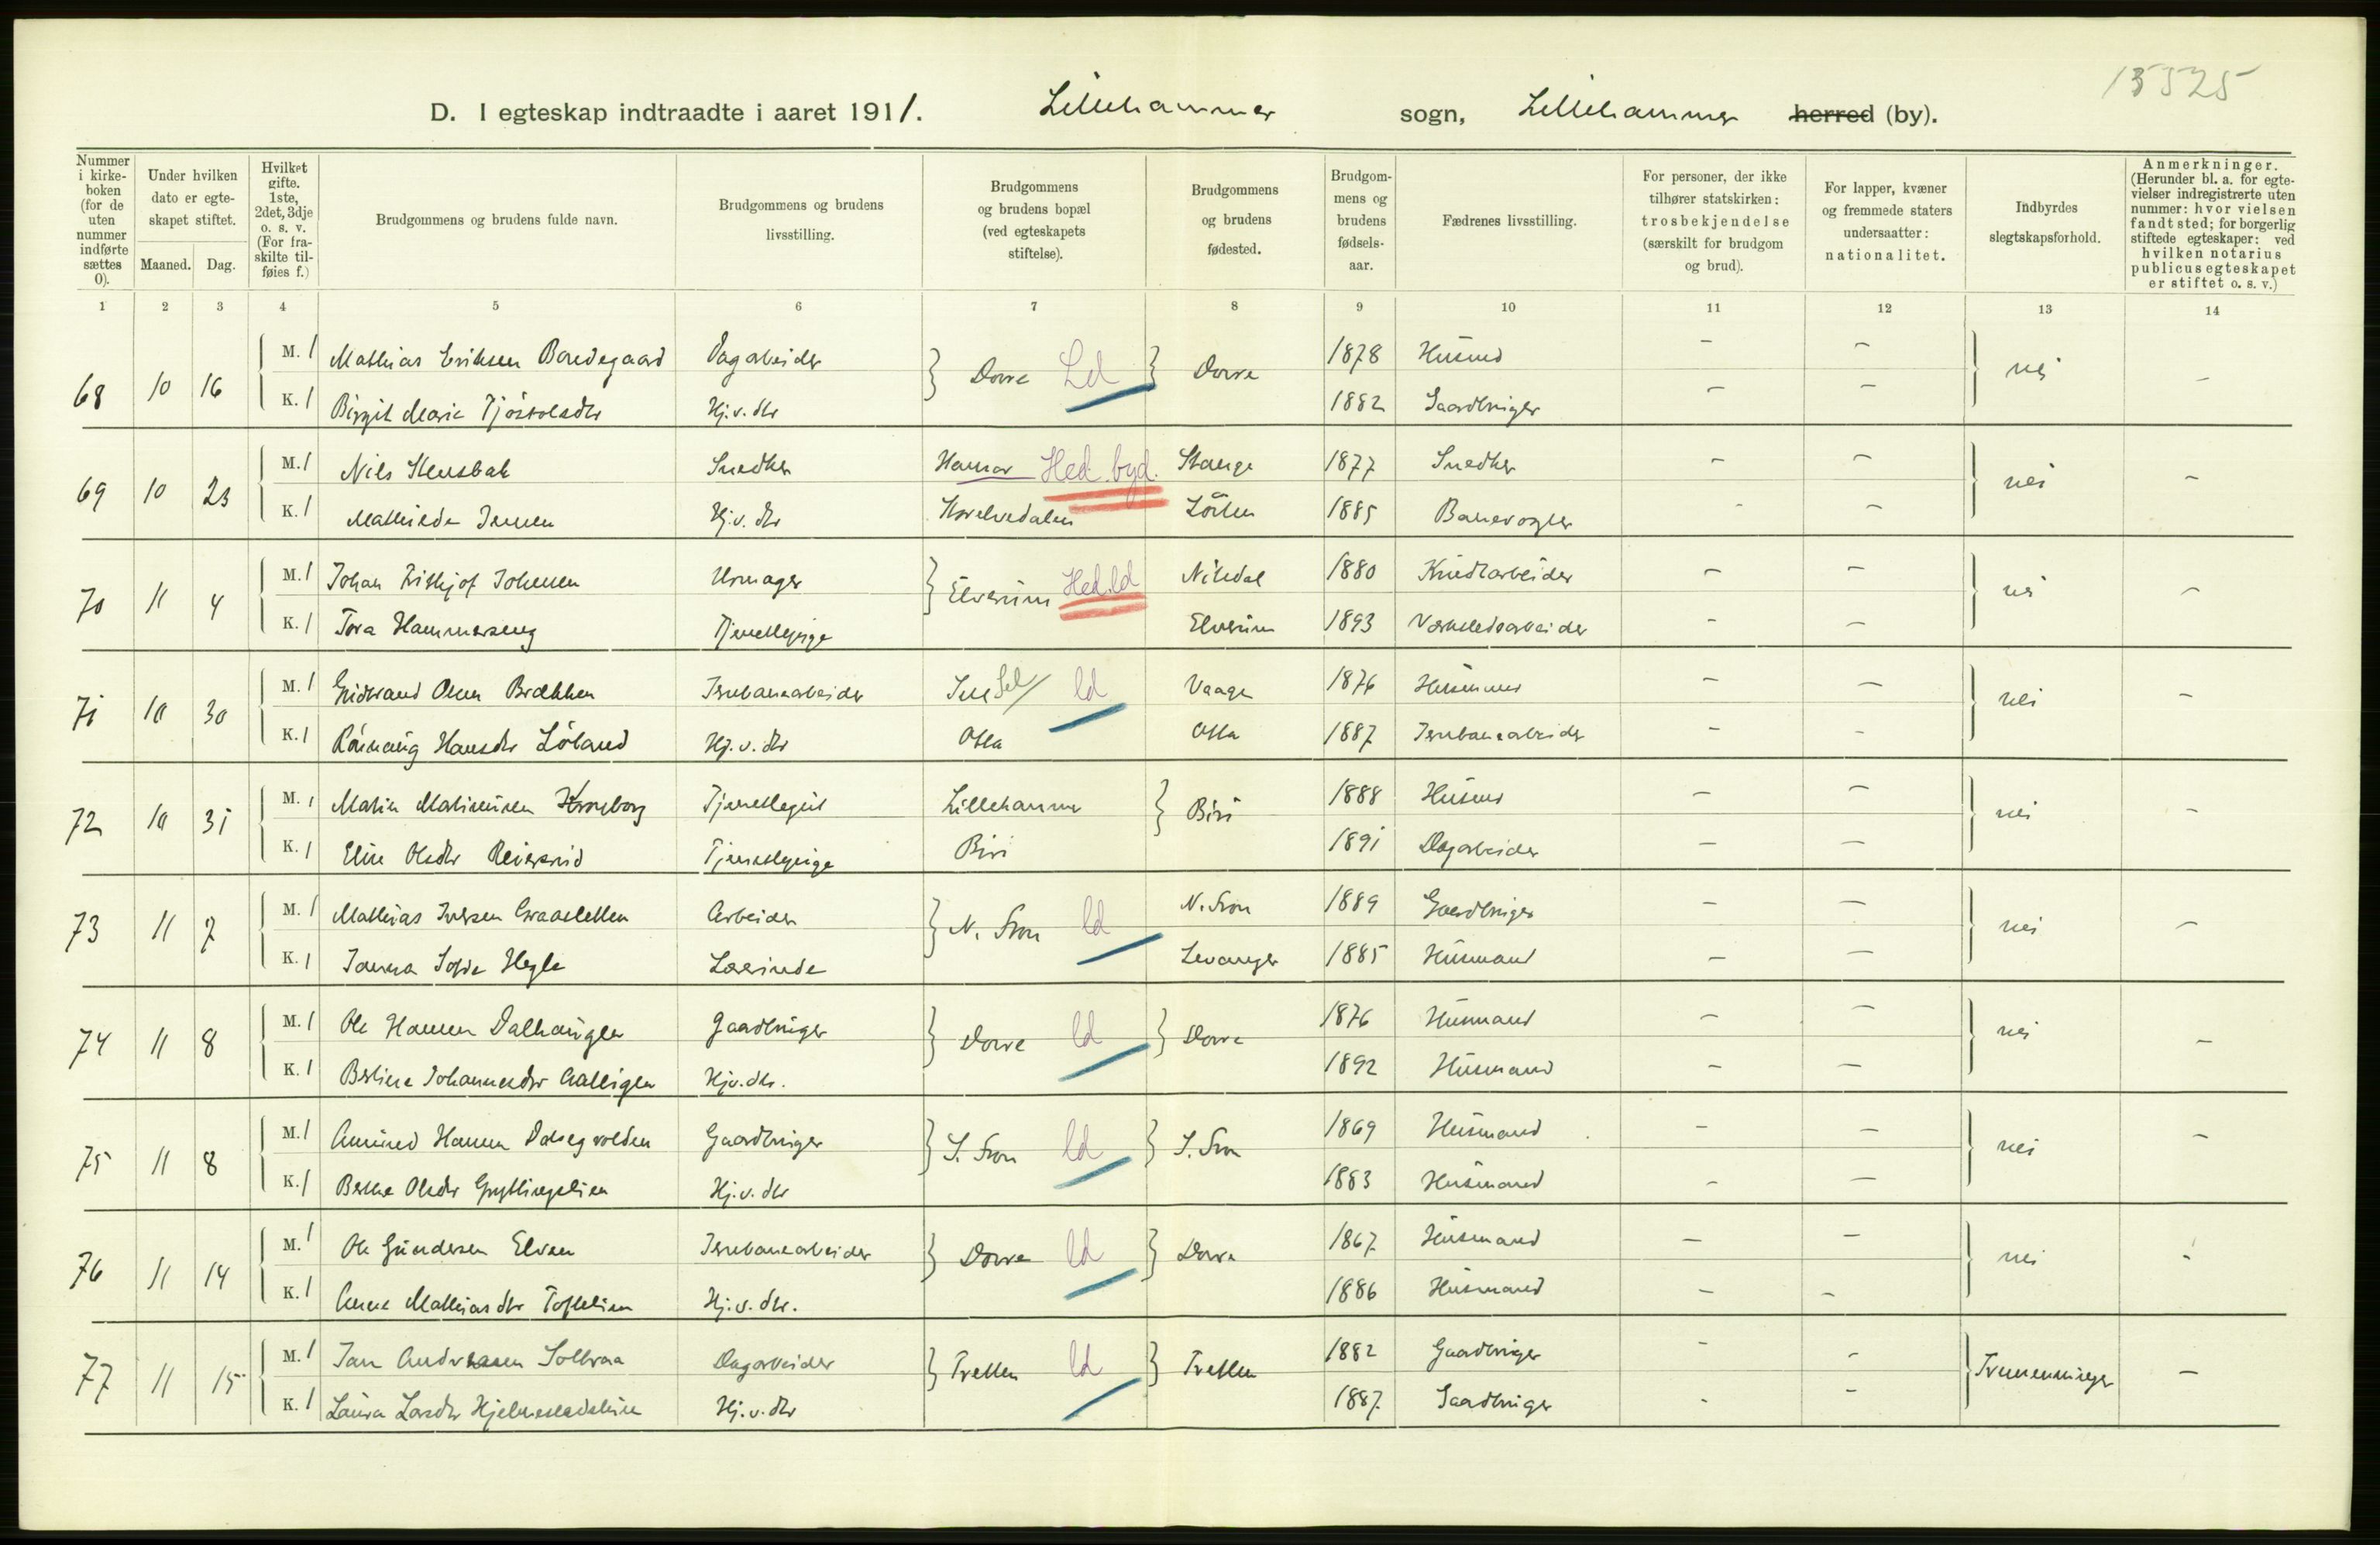 13525
D. I egteskap indtraadte i aaret 1911. Lillehammer sogn, Lillehammer herred (by).
Nummer i kirke-boken (for de uten nummer indførte sættes 0).
Under hvilken dato er egte-skapet stiftet.
Maaned. Dag.
Hvilket gifte. 1ste, 2det, 3dje o. s. v. (For fra-skilte til-føies f.)
Brudgommens og brudens fulde navn.
Brudgommens og brudens livsstilling.
Brudgommens og brudens bopæl (ved egteskapets stiftelse).
Brudgommens og brudens fødested.
Brudgom-mens og brudens fødsels-aar.
Fædrenes livsstilling.
For personer, der ikke tilhører statskirken: trosbekjendelse (særskilt for brudgom og brud).
For lapper, kvæner og fremmede staters undersaatter: nationalitet.
Indbyrdes slegtskapsforhold.
Anmerkninger. (Herunder bl. a. for egte-vielser indregistrerte uten nummer: hvor vielsen fandt sted; for borgerlig stiftede egteskaper: ved hvilken notarius publicus egteskapet er stiftet o. s. v.)
1 2 3 4 5 6 7 8 9 10 11 12 13 14
68 10 16 M. 1 Mathias Eriksen Bondegaard Dagarbeider Dovre Ld Dovre 1878 Husmd – – nei –
K. 1 Birgit Marie Hj.v. dtr 1882 Gaardbruger – –
69 10 23 M. 1 Nils Stensbak Snedker Hamar Hed. byd. Stange 1877 Snedker – – nei –
K. 1 Mathilde Jensen Hj.v. dtr Løiten 1885 Banevogter – –
70 11 4 M. 1 Johan Frithjof Johnsen Urmager Elverum Hed.ld Nitedal 1880 – – nei –
K. 1 Tora Hammerseng Tjenestepige Elverum 1893 Værkstedsarbeider – –
71 10 30 M. 1 Gudbrand Olsen Brækken Jernbanearbeider Sel/ ld Vaage 1876 Husmand – – nei –
K. 1 Rønnaug Hansdtr Løland Hj.v. dtr Otta Otta 1887 Jernbanearbeider – –
72 10 31 M. 1 Martin Martinusen Kronborg Tjenestegut Lillehammer Biri 1888 Husmd – – nei –
K. 1 Eline Olsdtr Tjenestepige Biri 1891 Dagarbeider – –
73 11 7 M. 1 Mathias Iversen Graasletten Arbeider N. Fron ld N. Fron 1889 Gaardbruger – – nei –
K. 1 Janna Sofie Hegle Lærerinde Levanger 1885 Husmand – –
74 11 8 M. 1 Ole Hansen Dalhaugen Gaardbruger Dovre ld Dovre 1876 Husmand – – nei –
K. 1 Berline Johannesdtr Hjv.dtr. 1892 Husmand – –
75 11 8 M. 1 Amund Hansen Dalsegvolden Gaardbruger S. Fron ld S. Fron 1869 Husmand – – nei –
K. 1 Berthe Olsdtr Gryttingslien Hj.v. dtr 1883 Husmand – –
76 11 14 M. 1 Ole Gundersen Elven Jernbanearbeider Dovre ld Dovre 1867 Husmand – – nei –
K. 1 Anne Mathiasdtr Toftelien Hj.v. dtr. 1886 Husmand – –
77 11 15 M. 1 Jan Andreasen Solbraa Dagarbeider Tretten ld Tretten 1882 Gaardbruger – – Tremenninger –
K. 1 Laura Larsdtr Hj.v. dtr 1887 Gaardbruger – –